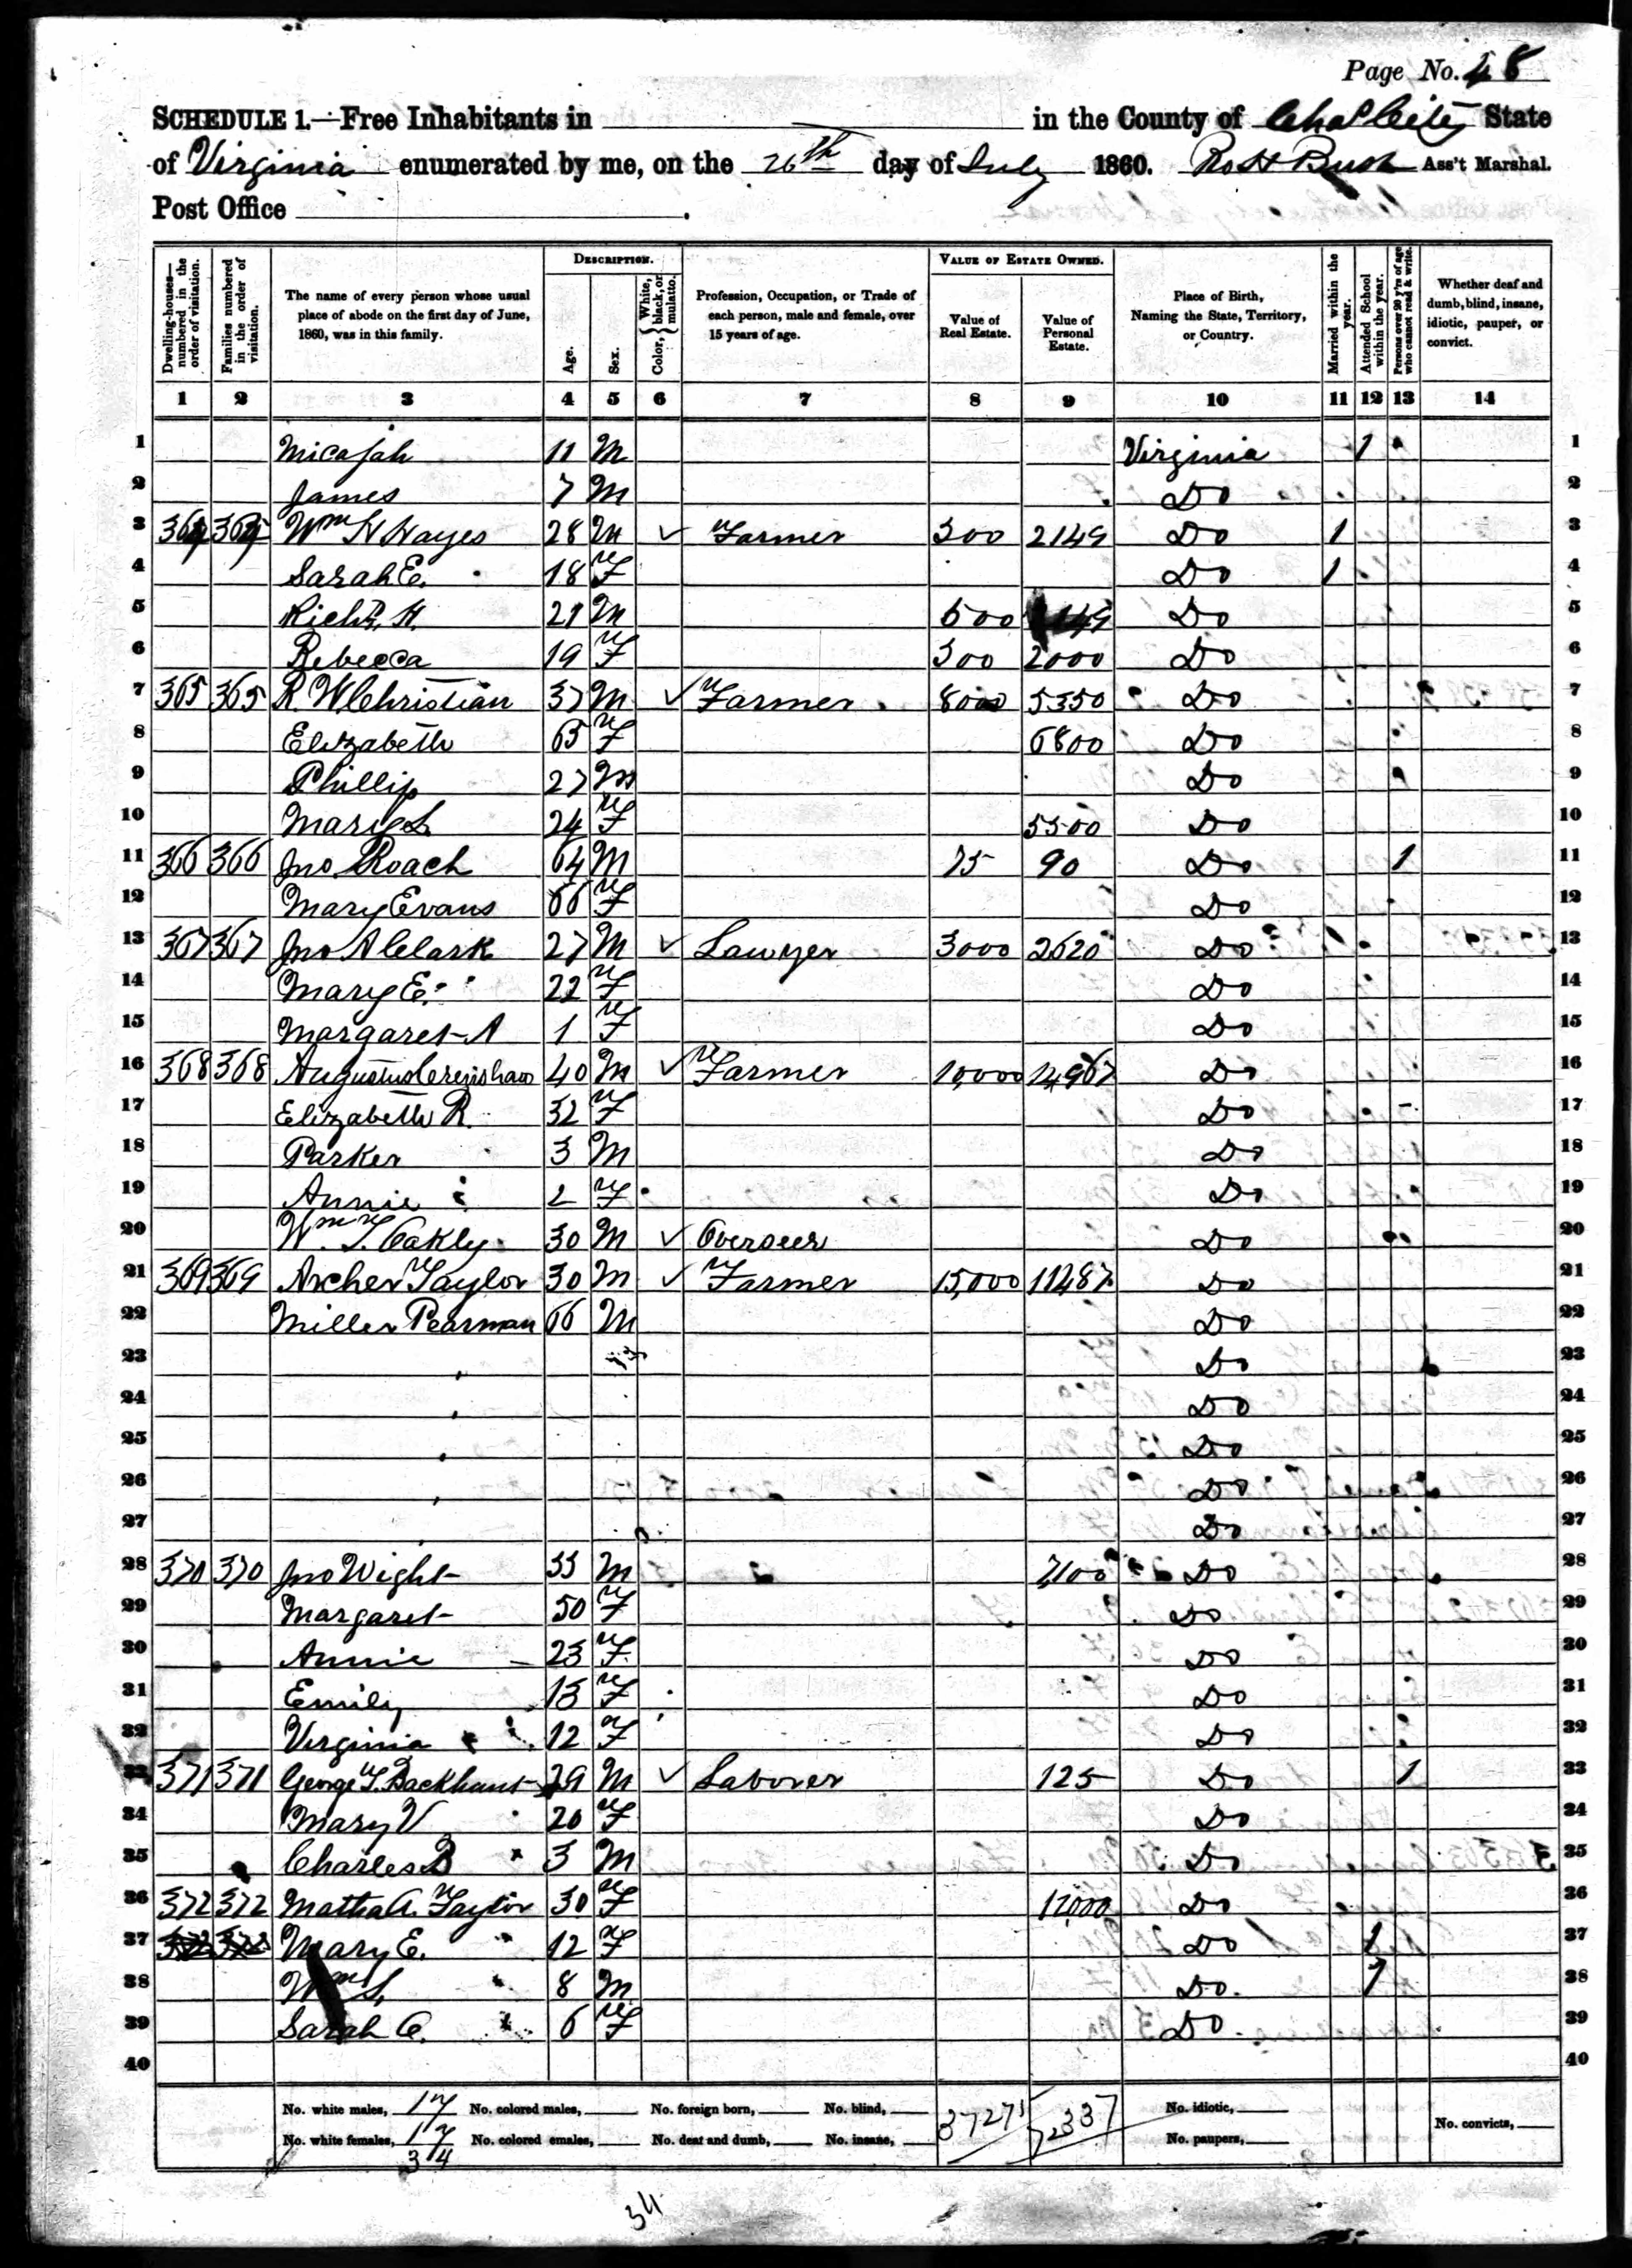 Page No. 48
SCHEDULE 1.—Free Inhabitants in in the County of Chas City State
of Virginia enumerated by me, on the 26th day of July 1860. Ro H Bush Ass't Marshal.
Post Office .
Dwelling-houses—numbered in the order of visitation. Families numbered in the order of visitation. The name of every person whose usual place of abode on the first day of June, 1860, was in this family. DESCRIPTION. Age. Sex. Color, { White, black, or mulatto. Profession, Occupation, or Trade of each person, male and female, over 15 years of age. VALUE OF ESTATE OWNED. Value of Real Estate. Value of Personal Estate. Place of Birth, Naming the State, Territory, or Country. Married within the year. Attended School within the year. Persons over 20 y'rs of age who cannot read & write. Whether deaf and dumb, blind, insane, idiotic, pauper, or convict.
1 2 3 4 5 6 7 8 9 10 11 12 13 14
1 Micajah 11 M Virginia 1 1
2 James 7 M Do 2
3 364 364 Wm H Hayes 28 M ✓ Farmer 300 2149 Do 1 3
4 Sarah E. 18 F Do 1 4
5 Richd. H. 21 M 500 149 Do 5
6 Rebecca 19 F 300 2000 Do 6
7 365 365 R. W. Christian 37 M ✓ Farmer 8000 5350 Do 7
8 Elizabeth 65 F 6800 Do 8
9 Phillip 27 M Do 9
10 Mary L 24 F 5500 Do 10
11 366 366 Jno. Roach 64 M 75 90 Do 1 11
12 Mary Evans 66 F Do 12
13 367 367 Jno A Clark 27 M ✓ Lawyer 3000 2620 Do 13
14 Mary E. 22 F Do 14
15 Margaret A 1 F Do 15
16 368 368 Augustus Crenshaw 40 M ✓ Farmer 10,000 14,967 Do 16
17 Elizabeth R. 32 F Do 17
18 Parker 3 M Do 18
19 Annie 2 F Do 19
20 Wm. T. Oakly 30 M ✓ Overseer Do 20
21 369 369 Archer Taylor 30 M ✓ Farmer 15,000 11487 Do 21
22 Miller Pearman 66 M Do 22
23 Do 23
24 Do 24
25 Do 25
26 Do 26
27 Do 27
28 370 370 Jno Wight 33 M 7,100 Do 28
29 Margaret 50 F Do 29
30 Annie 23 F Do 30
31 Emily 15 F Do 31
32 Virginia 12 F Do 32
33 371 371 George T. Backhurst 29 M ✓ Laborer 125 Do 1 33
34 Mary V 20 F Do 34
35 Charles B 3 M Do 35
36 372 372 Martha A. Taylor 30 F 12,000 Do 36
37 Mary E. 12 F Do 1 37
38 Wm S. 8 M Do. 1 38
39 Sarah C. 6 F Do 39
40 40
No. white males, 17 No. colored males, No. foreign born, No. blind, 37275 72337 No. idiotic,
No. white females, 17 No. colored emales, No. deaf and dumb, No. insane, No. paupers, No. convicts,
34
34